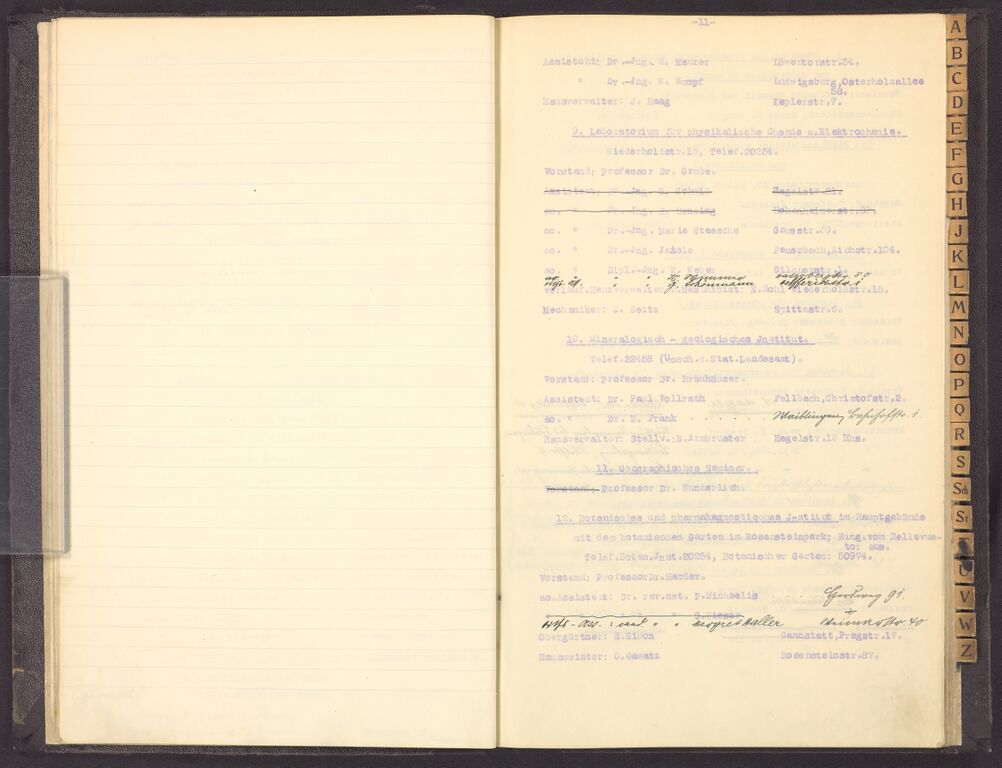 -11-
Assistent: Dr.-Jng. H. Maurer Löwentorstr.34.
" Dr.-Jng. W. Kumpf Ludwigsburg, Osterholzallee
58.
Hausverwalter: J. Haag Keplerstr.7.
9. Laboratorium für physikalische Chemie u.Elektrochemie.
Wiederholdstr.15, Telef.20254.
Vorstand; professor Dr. Grube.
Assistent; Dr. Jng. G. Schmid Hegelstr.21.
ao. " Dr.-Jng. Hohenheimerstr.
ao. " Dr.-Jng. Marie Staesche
ao. " Dr.-Jng. Feuerbach, Eichstr.104.
ao. " Dipl.-Jng. N. Weber Silcherstr.1.
ao. " "
" "
Hausverwalter Wiederholdstr.15.
Mechaniker: D. Seitz Spittastr.6.
10. Mineralogisch - geologisches Jnstitut.
Telef.22458 (Umsch.d.Stat.Landesamt).
Vorstand; professor Dr. Bräuhäuser.
Assistent; Dr. Paul Vollrath Fellbach, Christofstr.2.
ao. " Dr. M. Frank . . . . . Waiblingen, Bahnhofstr. 1.
Hausverwalter: Stellv.: E.Armbruster Hegelstr.15 Hhs.
11. Geographisches Seminar.
Vorstand; professor Dr. Wunderlich.
12. Botanisches und pharmakognostisches Jnstitut im Hauptgebäude
mit dem botanischen Garten im Rosensteinpark; Eing.vom Bellevue-
tor aus.
Telef.Botan.Jnst.20254, Botanischer Garten: 50974.
Vorstand; ProfessorDr.Harder.
ao.Assistent: Dr. rer.nat. P.Michaelis . . . 91
: cand " " Margret Haller Str. 40
Obergärtner: E.Simon Cannstatt, Pragstr.17.
Hausmeister: O. Rosensteinstr.87.
A
B
C
D
E
F
G
H
J
K
L
M
N
O
P
Q
R
S
Sch
St
T
U
V
W
Z